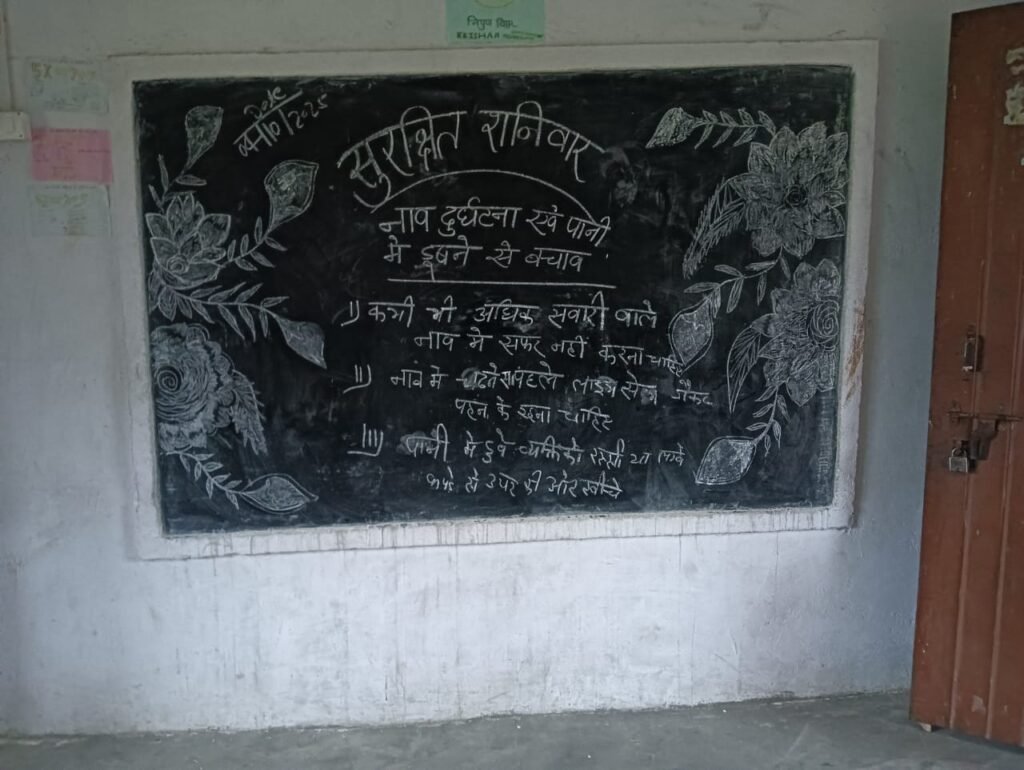 निपुण बिहार
सुरक्षित शनिवार
नाव दुर्घटना एवं पानी
मे डूबने से बचाव
I) कभी भी अधिक सवारी वाले
नाव मे सफर नहीं करना चाहिए
II) नाव मे चढ़ने से पहले लाइफ सेव जैकेट
पहन के रहना चाहिए
III) पानी मे डुबे व्यक्ति को रस्सी या लम्बे
कपड़े से उपर की ओर खींचे